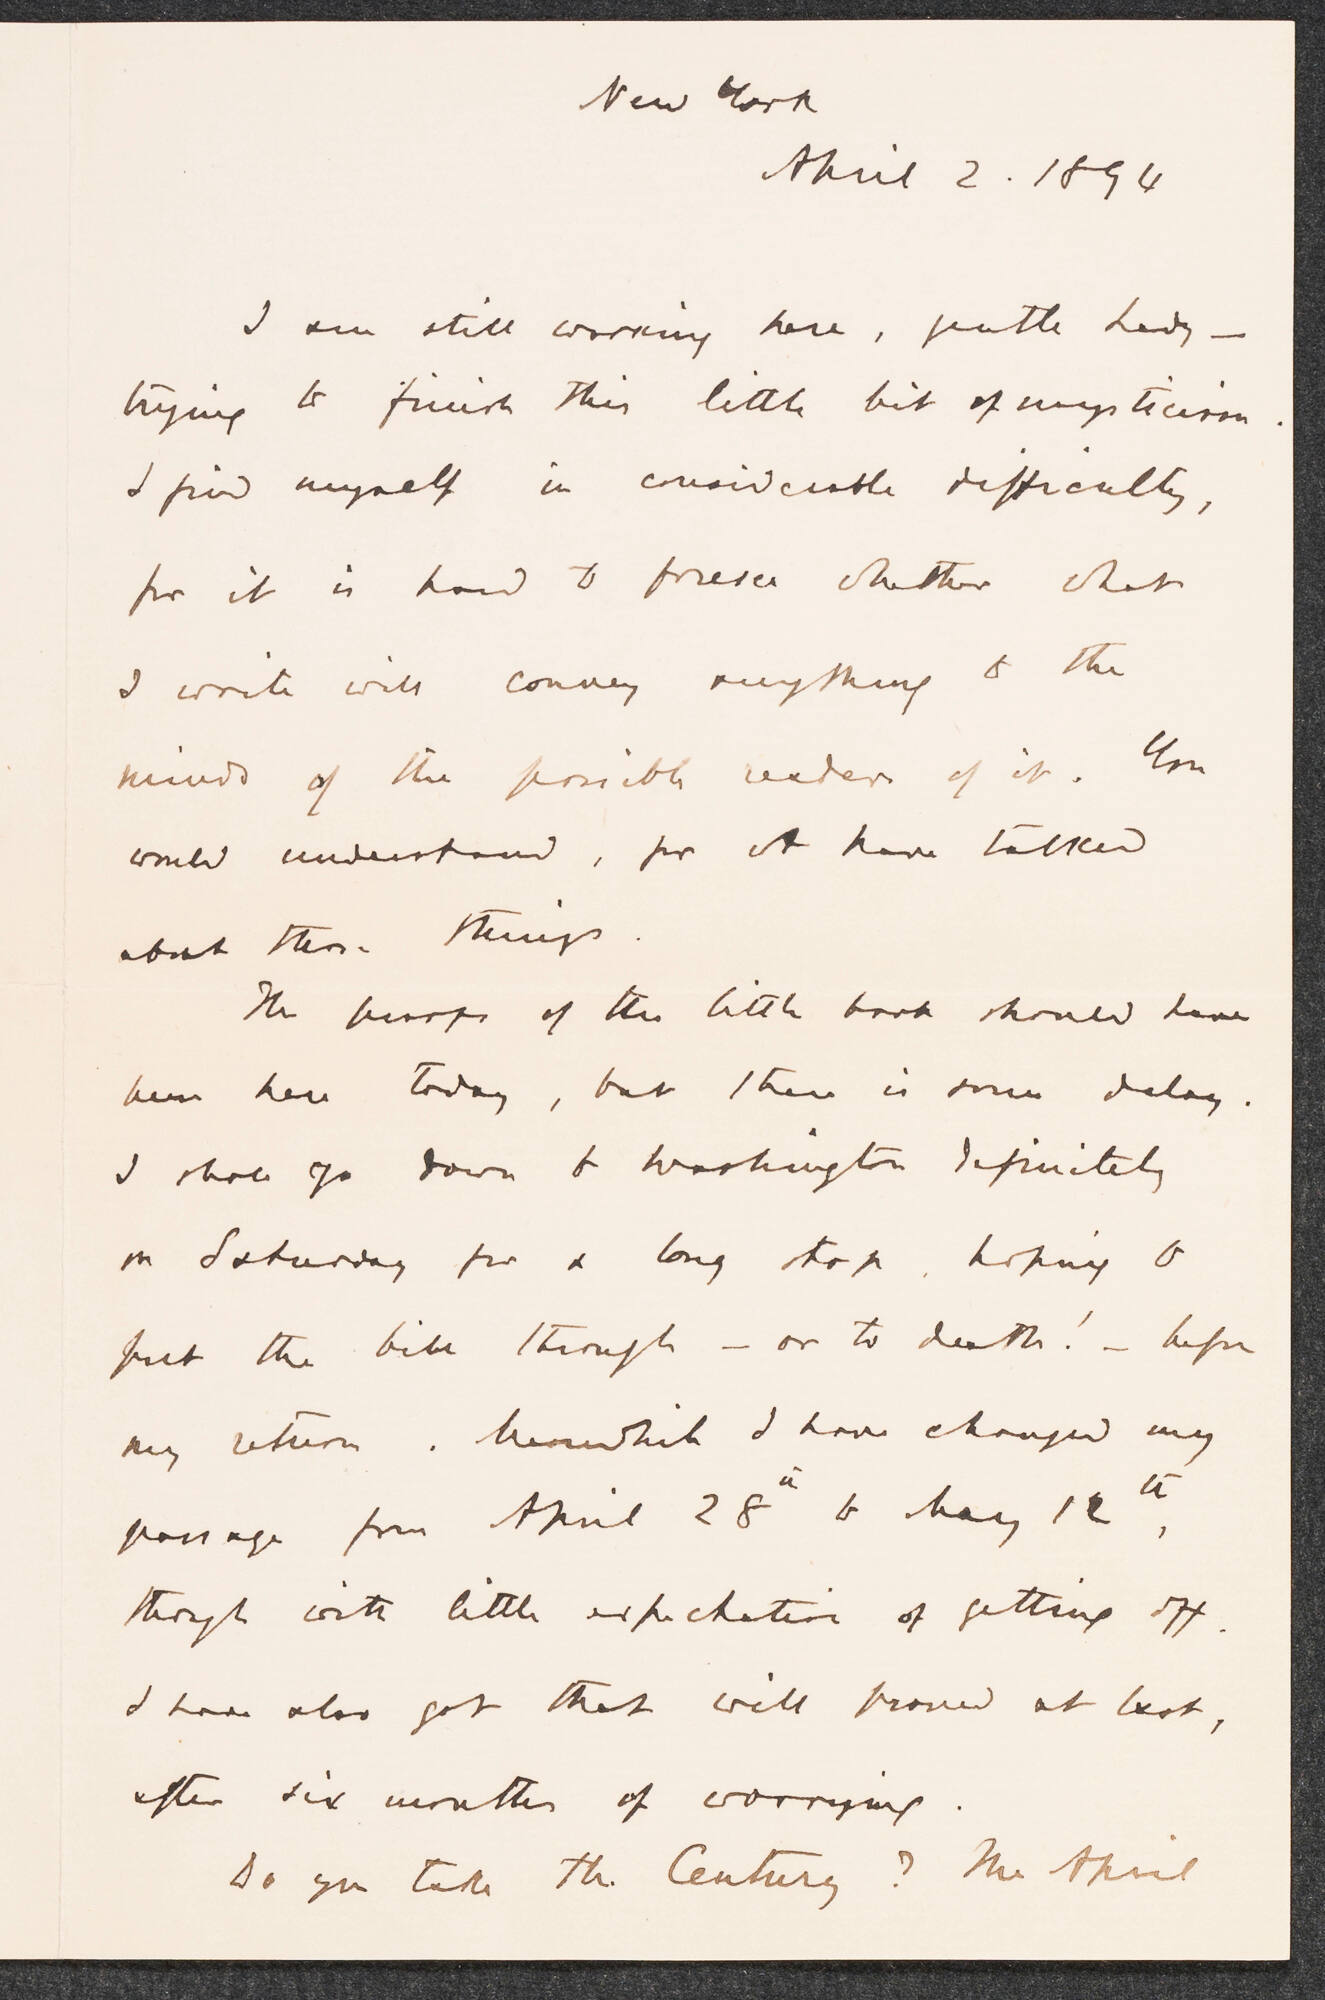 New York
April 2. 1894
I am still working here, gentle lady —
trying to finish this little bit of mysticism.
I find myself in considerable difficulty,
for it is hard to foresee whether what
I write will convey anything to the
minds of the possible readers of it. You
would understand, for we have talked
about these things.
The proofs of the little book should have
been here today, but there is some delay.
I shall go down to Washington definitely
on Saturday for a long stop, hoping to
put the bill through — or to death! — before
my return. Meanwhile I have changed my
passage from April 28th to May 12th,
though with little expectation of getting off.
I have also got that will proved at last,
after six months of worrying.
Do you take the Century? The April